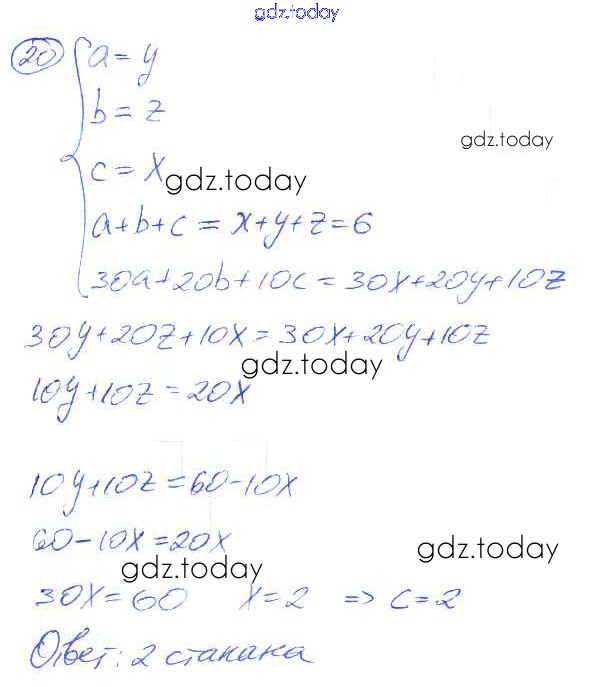 gdz.today
20 a = y
b = z
gdz.today
c = x
gdz.today
a+b+c = x+y+z=6
30a+20b+10c=30x+20y+10z
30y+20z+10x=30x+20y+10z
gdz.today
10y+10z=20x
10y+10z=60-10x
60-10x=20x
gdz.today
gdz.today
30x=60 x=2 => c=2
Ответ: 2 стакана